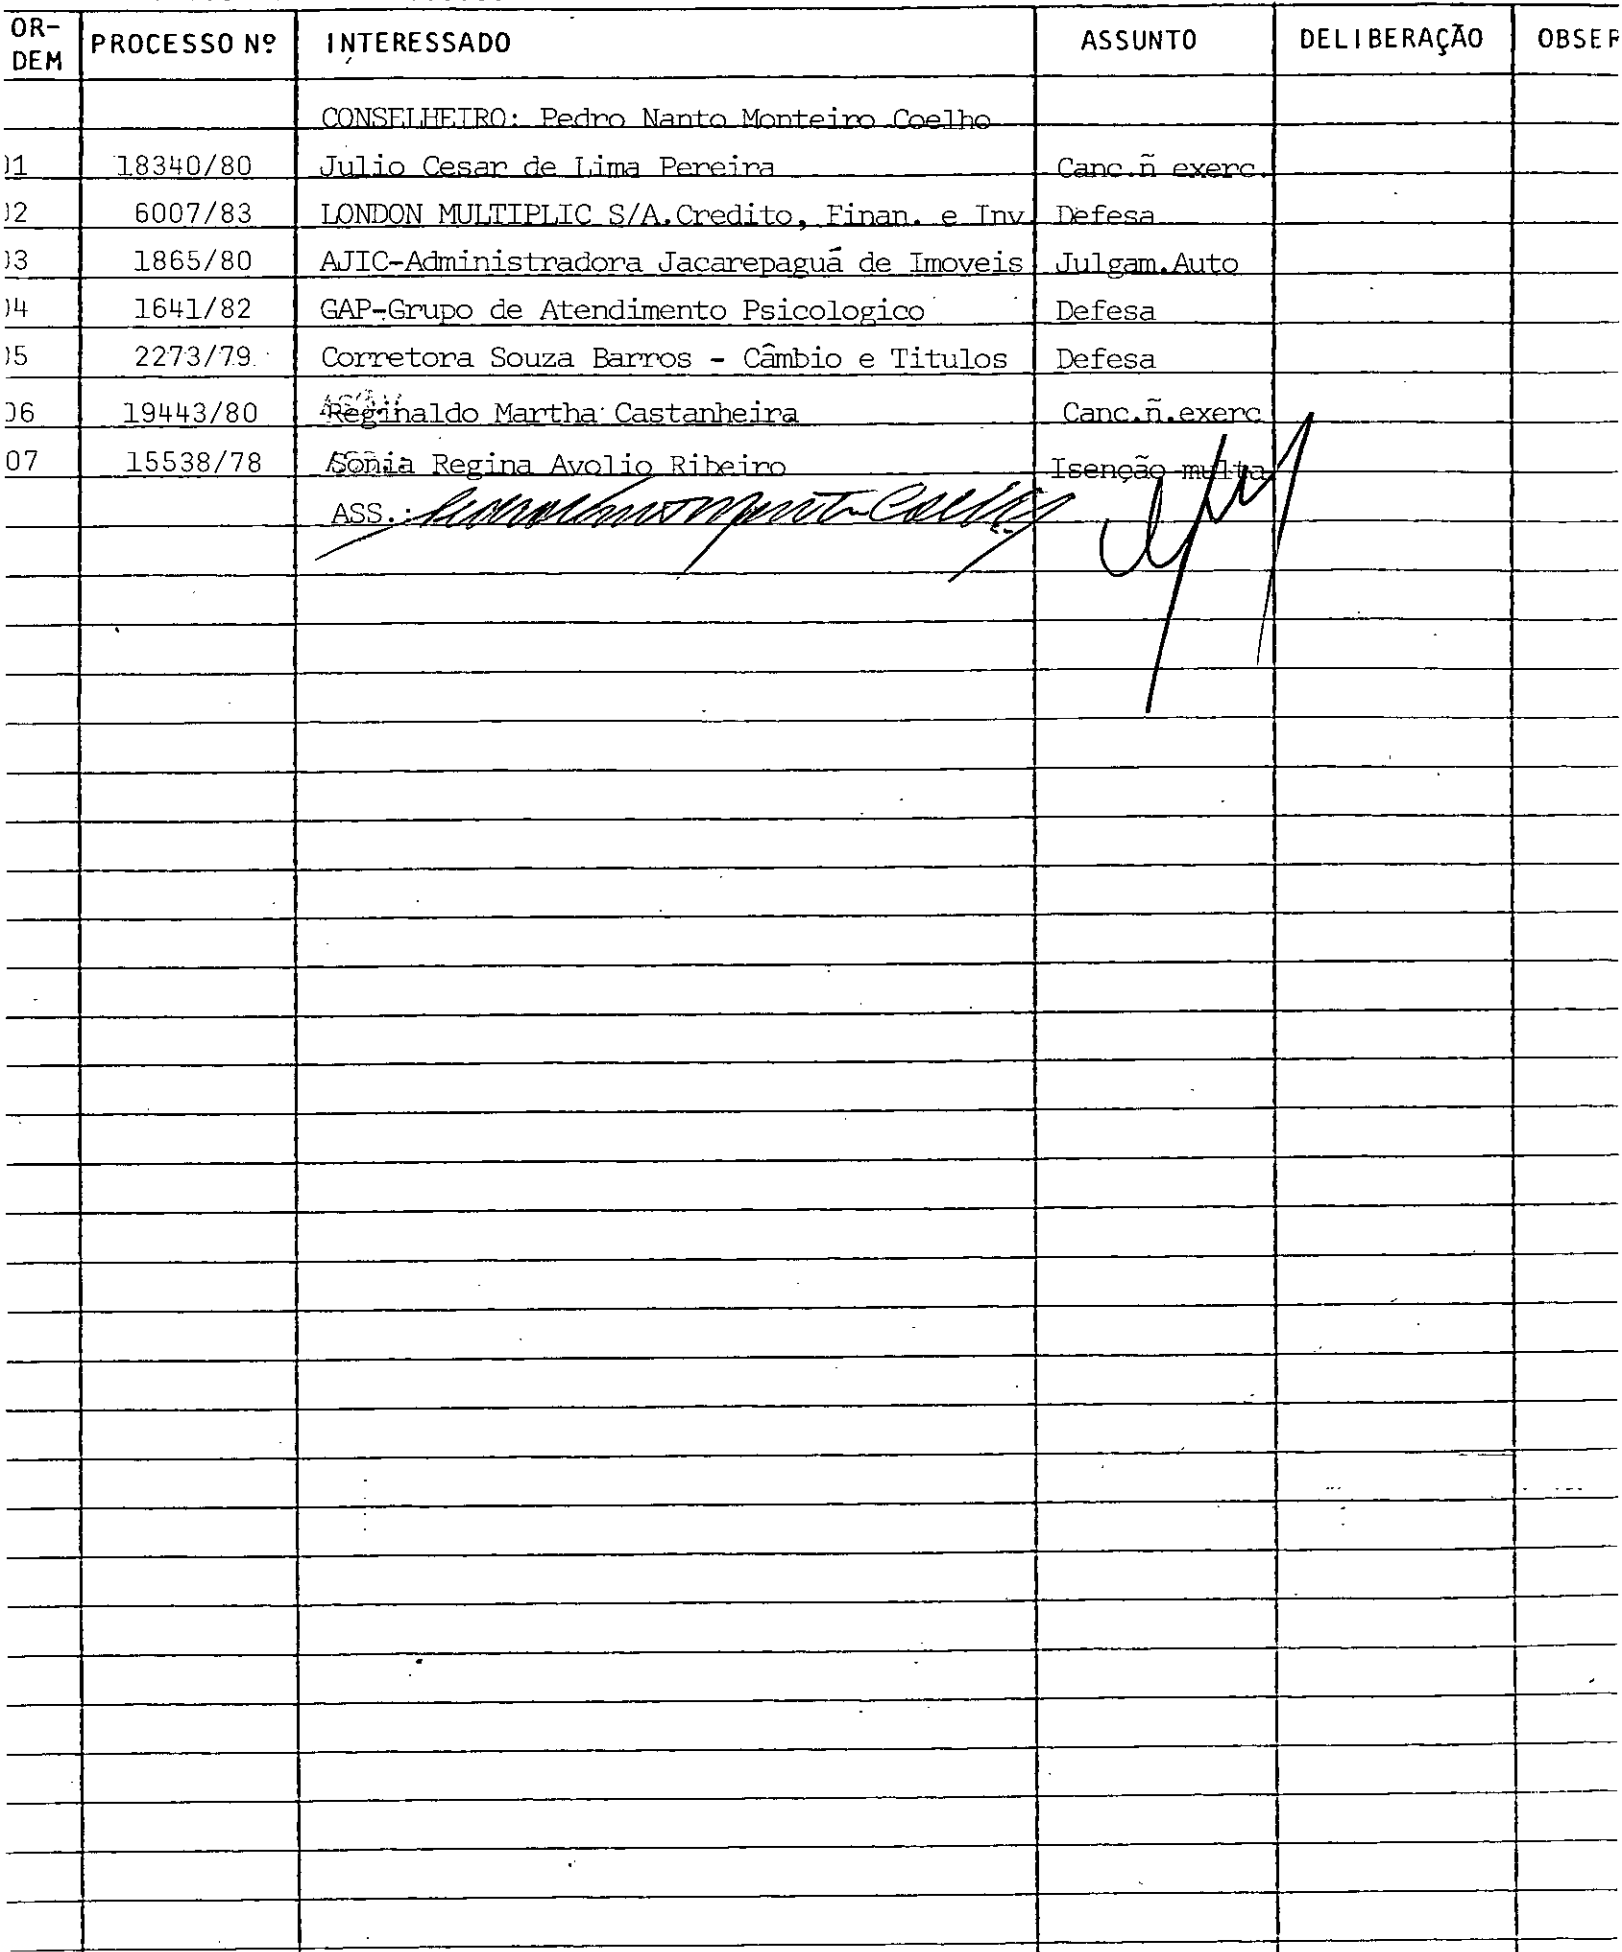 OR- DEM PROCESSO Nº INTERESSADO ASSUNTO DELIBERAÇÃO OBSER
CONSELHEIRO: Pedro Nanto Monteiro Coelho
01 18340/80 Julio Cesar de Lima Pereira Canc.ñ exerc.
02 6007/83 LONDON MULTIPLIC S/A.Credito, Finan. e Inv Defesa
03 1865/80 AJIC-Administradora Jacarepaguá de Imoveis Julgam.Auto
04 1641/82 GAP-Grupo de Atendimento Psicologico Defesa
05 2273/79 Corretora Souza Barros - Câmbio e Titulos Defesa
06 19443/80 Reginaldo Martha Castanheira Canc.ñ.exerc
07 15538/78 Sonia Regina Avolio Ribeiro Isenção multa
ASS.: